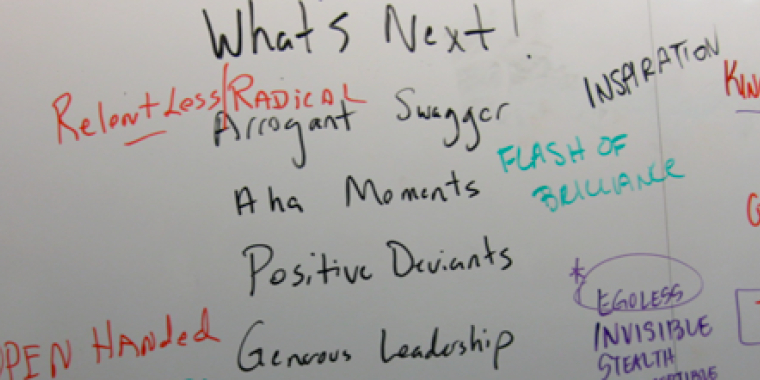 What's Next!
INSPIRATION
Relentless/RADICAL
Arrogant Swagger
FLASH OF
BRILLIANCE
Aha Moments
Positive Deviants
* EGOLESS
INVISIBLE
STEALTH
OPEN HANDED
Generous Leadership